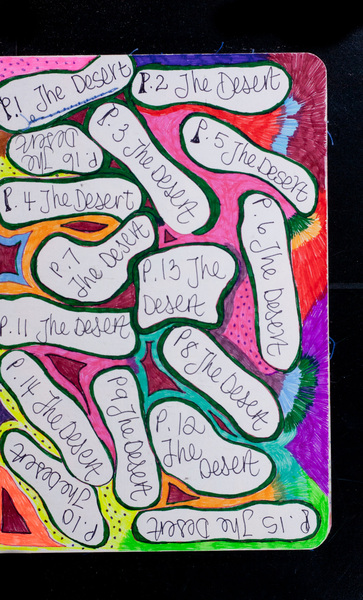 P.1 The Desert
P.2 The Desert
P.3
The Desert
P.5
The Desert
P.16 The
Desert
P.4 The Desert
P.6 The Desert
P.7
The Desert
P.13 The
Desert
P.11 The Desert
P.8 The Desert
P.14 The Desert
P.9 The Desert
P.12
The
Desert
P.10
The Desert
P.15 The Desert